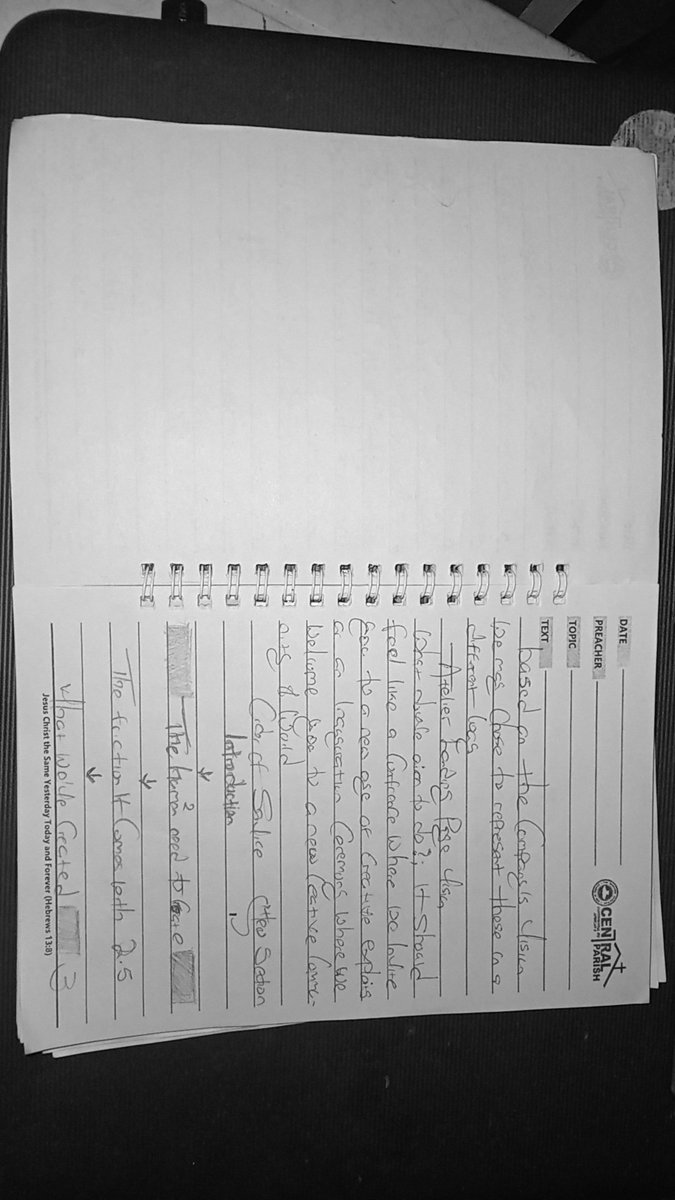 DATE
PREACHER
TOPIC
TEXT
CENTRAL
PARISH
based on the Company's vision
we may chose to represent these in a
different way
Atelier Landing Page Vision
What does aim to do?; it should
feel like a Conference where we invite
you to a new age of Creative
or an Inauguration Ceremony where we
welcome you to a new Creative
World
Section
Introduction 1
↓
The Human need to Create
2
↓
The friction it Comes with 2.5
↓
What We've Created 3
Jesus Christ the Same Yesterday Today and Forever (Hebrews 13:8)